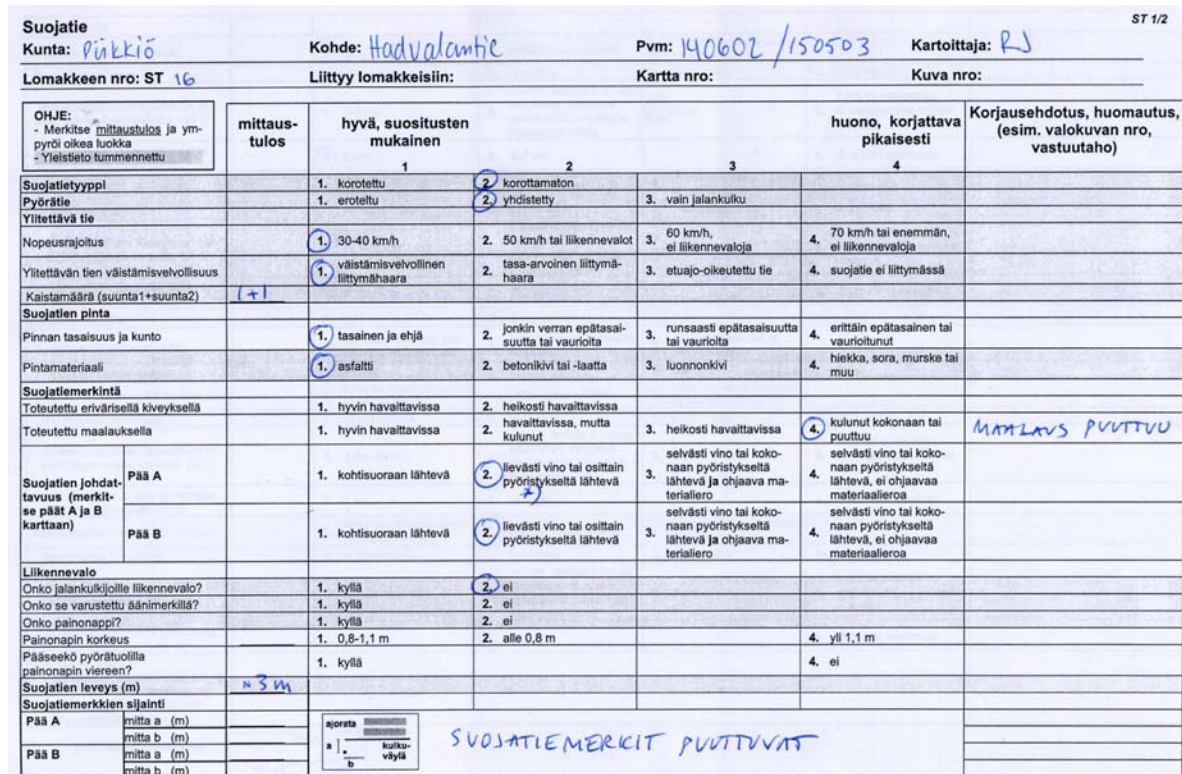 ST 1/2
Suojatie
Kunta: Piikkiö Kohde: Hadvalantie Pvm: 140602 /150503 Kartoittaja: RJ
Lomakkeen nro: ST 16 Liittyy lomakkeisiin: Kartta nro: Kuva nro:
OHJE:
- Merkitse mittaustulos ja ym-
pyröi oikea luokka
- Yleistieto tummennettu
mittaus-
tulos
hyvä, suositusten
mukainen
1
2
3
huono, korjattava
pikaisesti
4
Korjausehdotus, huomautus,
(esim. valokuvan nro,
vastuutaho)
Suojatietyyppi 1. korotettu 2. korottamaton
Pyörätie 1. eroteltu 2. yhdistetty 3. vain jalankulku
Ylitettävä tie
Nopeusrajoitus 1. 30-40 km/h 2. 50 km/h tai liikennevalot 3. 60 km/h,
ei liikennevaloja 4. 70 km/h tai enemmän,
ei liikennevaloja
Ylitettävän tien väistämisvelvollisuus 1. väistämisvelvollinen
liittymähaara 2. tasa-arvoinen liittymä-
haara 3. etuajo-oikeutettu tie 4. suojatie ei liittymässä
Kaistamäärä (suunta1+suunta2) 1+1
Suojatien pinta
Pinnan tasaisuus ja kunto 1. tasainen ja ehjä 2. jonkin verran epätasai-
suutta tai vaurioita 3. runsaasti epätasaisuutta
tai vaurioita 4. erittäin epätasainen tai
vaurioitunut
Pintamateriaali 1. asfaltti 2. betonikivi tai -laatta 3. luonnonkivi 4. hiekka, sora, murske tai
muu
Suojatiemerkintä
Toteutettu erivärisellä kiveyksellä 1. hyvin havaittavissa 2. heikosti havaittavissa
Toteutettu maalauksella 1. hyvin havaittavissa 2. havaittavissa, mutta
kulunut 3. heikosti havaittavissa 4. kulunut kokonaan tai
puuttuu MAALAUS PUUTTUU
Suojatien johdat-
tavuus (merkit-
se päät A ja B
karttaan)
Pää A 1. kohtisuoraan lähtevä 2. lievästi vino tai osittain
pyöristykseltä lähtevä 3. selvästi vino tai koko-
naan pyöristykseltä
lähtevä ja ohjaava ma-
terialiero 4. selvästi vino tai koko-
naan pyöristykseltä
lähtevä, ei ohjaavaa
materiaalieroa
Pää B 1. kohtisuoraan lähtevä 2. lievästi vino tai osittain
pyöristykseltä lähtevä 3. selvästi vino tai koko-
naan pyöristykseltä
lähtevä ja ohjaava ma-
terialiero 4. selvästi vino tai koko-
naan pyöristykseltä
lähtevä, ei ohjaavaa
materiaalieroa
Liikennevalo
Onko jalankulkijoille liikennevalo? 1. kyllä 2. ei
Onko se varustettu äänimerkillä? 1. kyllä 2. ei
Onko painonappi? 1. kyllä 2. ei
Painonapin korkeus 1. 0,8-1,1 m 2. alle 0,8 m 4. yli 1,1 m
Pääseekö pyörätuolilla
painonapin viereen? 1. kyllä 4. ei
Suojatien leveys (m) ~3m
Suojatiemerkkien sijainti
Pää A mitta a (m)
mitta b (m)
Pää B mitta a (m)
mitta b (m)
ajorata
a
kulku-
väylä
b
SUOJATIEMERKIT PUUTTUVAT